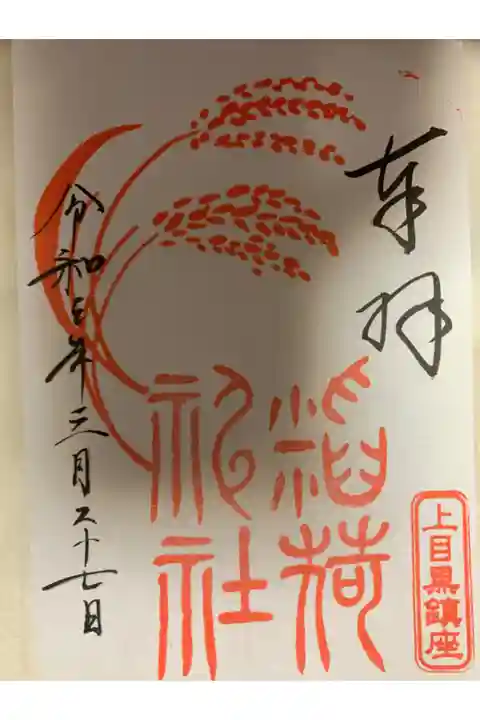 奉拝
上目黒鎮座
稲荷
神社
令和三年三月二十七日